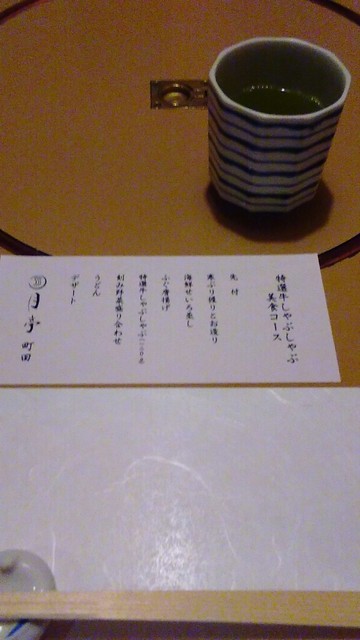 特選牛しゃぶしゃぶ
美食コース
先付
寒ぶり握りとお造り
海鮮せいろ蒸し
ふぐ唐揚げ
特選牛しゃぶしゃぶ
刻み野菜盛り合わせ
うどん
デザート
月亭
町田